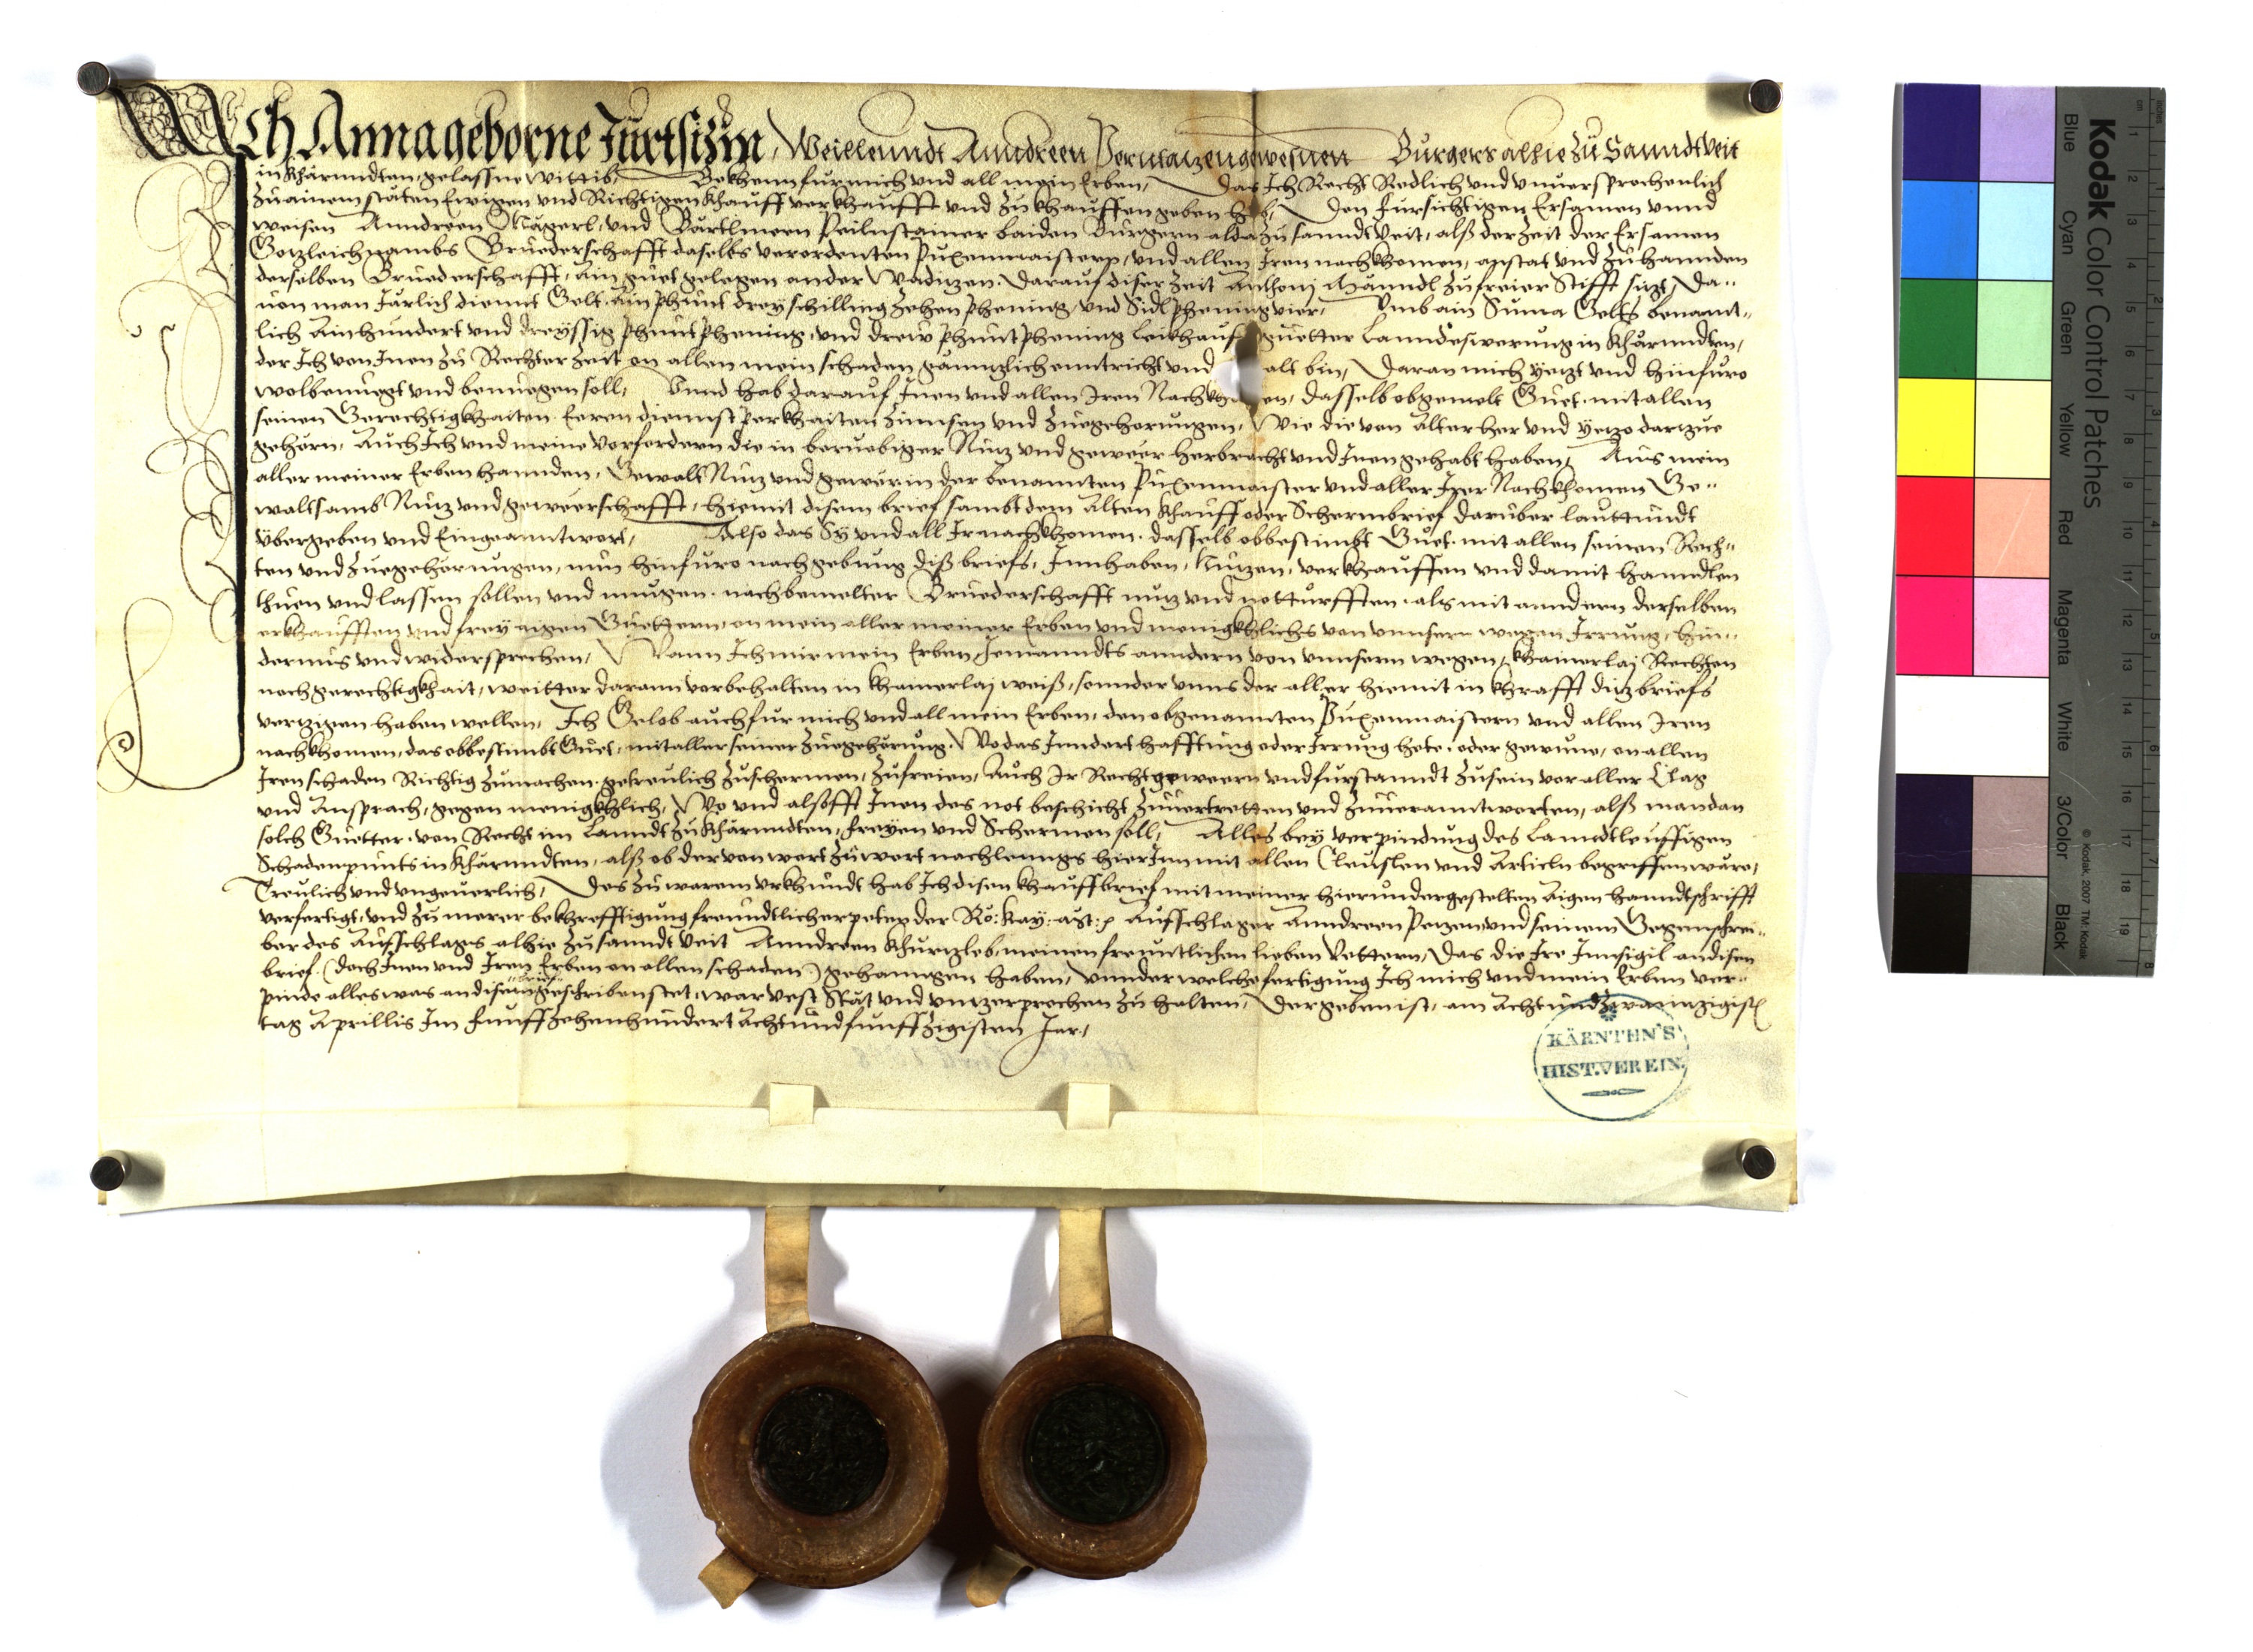 Ich Anna geborne Jurtsizin, Weillenndt Anndreen gewesnen Burgers alhie zu Sanndt Veit
in Khärnndten, gelassne Wittib, Bekhenn fur mich vnd all mein Erben, Das Ich Recht Redlich vnd vnuersprochenlich
zu ainem stäten Ewigen vnd Richtigen Khauff verkhaufft vnd zu khauffen geben hab, Den fursichtigen Ersamen vnnd
weisen Anndreen vnd Bärtlmeen Peilnstainer baiden Burgern alda zu sanndt Veit, alß der Zeit der Ersamen
Gotzleichnambs Bruederschafft daselbs verordenten Puxenmaistern, vnd allen Iren nachkhomen, anstat vnd zu hannden
derselben Bruederschafft, ain guet gelegen an der Darauf diser Zeit Anthoni Männdl zu freier Stifft sizt, Da-
uon man Järlich diennt Gelt ain phunt drey schilling zehen phening, vnd Sidlphening vier, Vmb ain Suma Gelts benannt-
lich Ainhundert vnd dreyssig phunt phening, vnd drew phunt phening leikhauf guetter Lanndeswerung in Khärnndten,
der Ich von Inen zu Rechter Zeit on allen mein schaden gänntzlich enntricht vnd alt bin, Daran mich yetzt vnd hinfuro
wolbenuegt vnd benuegen soll, Vnnd hab darauf Inen vnd allen Iren Nachkhomen, dasselb obgemelt Guet, mit allen
seinen Gerechtigkhaiten Eeren diennstperkhaiten Zinnsen vnd Zuegehorungen, Wie die von Alter her vnd yetzo dartzue
gehörn, Auch Ich vnd meine Vorfordern die in beruebiger Nutz vnd geweer herbracht vnd Innengehabt haben, Aus mein
aller meiner Erben hannden, Gewalt Nutz vnd gewer in der benannten Puxenmaister vnd aller Irer Nachkhomen Ge-
waltsamb Nutz vnd geweerschafft, hiemit disem brief sambt dem Alten Khauff oder Schermbrief daruber lauttundt
vbergeben vnd Eingeanntwort, Also das Sy vnd all Ir nachkhomen dasselb obbestimbt Guet, mit allen seinen Rech-
ten vnd Zuegehörungen, nun hinfuro nach gebung diß briefs, Innhaben, Nutzen, verkhauffen vnd damit hanndlen
thuen vnd lassen sollen vnd mugen nach bemelter Bruederschafft nutz vnd notturfften, als mit anndern derselben
erkhaufften vnd frey aigen Guettern, on mein aller meiner Erben vnd menigkhlichs von vnnsern wegen Irrung, hin-
dernus vnd widersprechen, Wann Ich mir mein Erben Jemanndts anndern von vnnsern wegen, khainerlaj Rechten
noch gerechtigkhait, weitter daran vorbehalten in khainerlaj weiß, sonnder vnns der aller hiemit in khrafft ditz briefs
vertzigen haben wellen, Ich Gelob auch fur mich vnd all mein Erben, den obgenannten Puxenmaistern vnd allen Iren
nachkhomen, das obbestimbt Guet, mit aller seiner Zuegehörung, Wo das Inndert hafftung oder Irrung hete, oder gewune, on allen
Iren schaden Richtig zumachen, getreulich zuschermen, zufreien, Auch Ir Recht geweern vnd furstanndt zusein vor aller Clag
vnd Ansprach, gegen menigkhlich, Wo vnd alsofft Inen des not beschicht zuuertretten vnd zuuerantworten, alß man dan
solch Guetter von Recht im Lanndt zu Khärnndten, freyen vnd Schermen soll, Alles bey verpindung des Lanndtleuffigen
Schadenpunts in Khärnndten, alß ob der von wort zu wort nachlenngs hierInn mit allen Cleuslen vnd Articln begriffen wure,
Treulich vnd vngeuerlich, Des zu warem vrkhundt hab Ich disen khauffbrief mit meiner hierundergestelten Aigen hanndtschrifft
verfertigt, vnd zu merer bekhrefftigung freundtlicher peten der Rö: Kay: Aufschlager Anndreen vnd seinem Gegenschrei-
ber des Aufschlags alhie zu sanndt Veit Anndreen Khurzleb, meinen freuntlichen lieben Vettern, Das die Ire Innsigil an disen
brief (doch Inen vnd Iren Erben on allen schaden) gehanngen haben, vnnder welcher fertigung Ich mich vnd mein Erben ver-
pinde alles was an disem brief geschriben stet, war vest Stät vnd vnzerprochen zu halten, Der geben ist, am Achtundzwaintzigisten
tag Aprillis Im Funffzehenhundert Achtundfunffzigisten Jar,
KÄRNTEN'S
HIST. VEREIN.
Kodak Color Control Patches
Blue Cyan Green Yellow Red Magenta White 3/Color Black
© Kodak, 2007 TM: Kodak
cm 1 2 3 4 5 6 7 8 9 10 11 12 13 14 15 16 17 18 19
inches 1 2 3 4 5 6 7 8